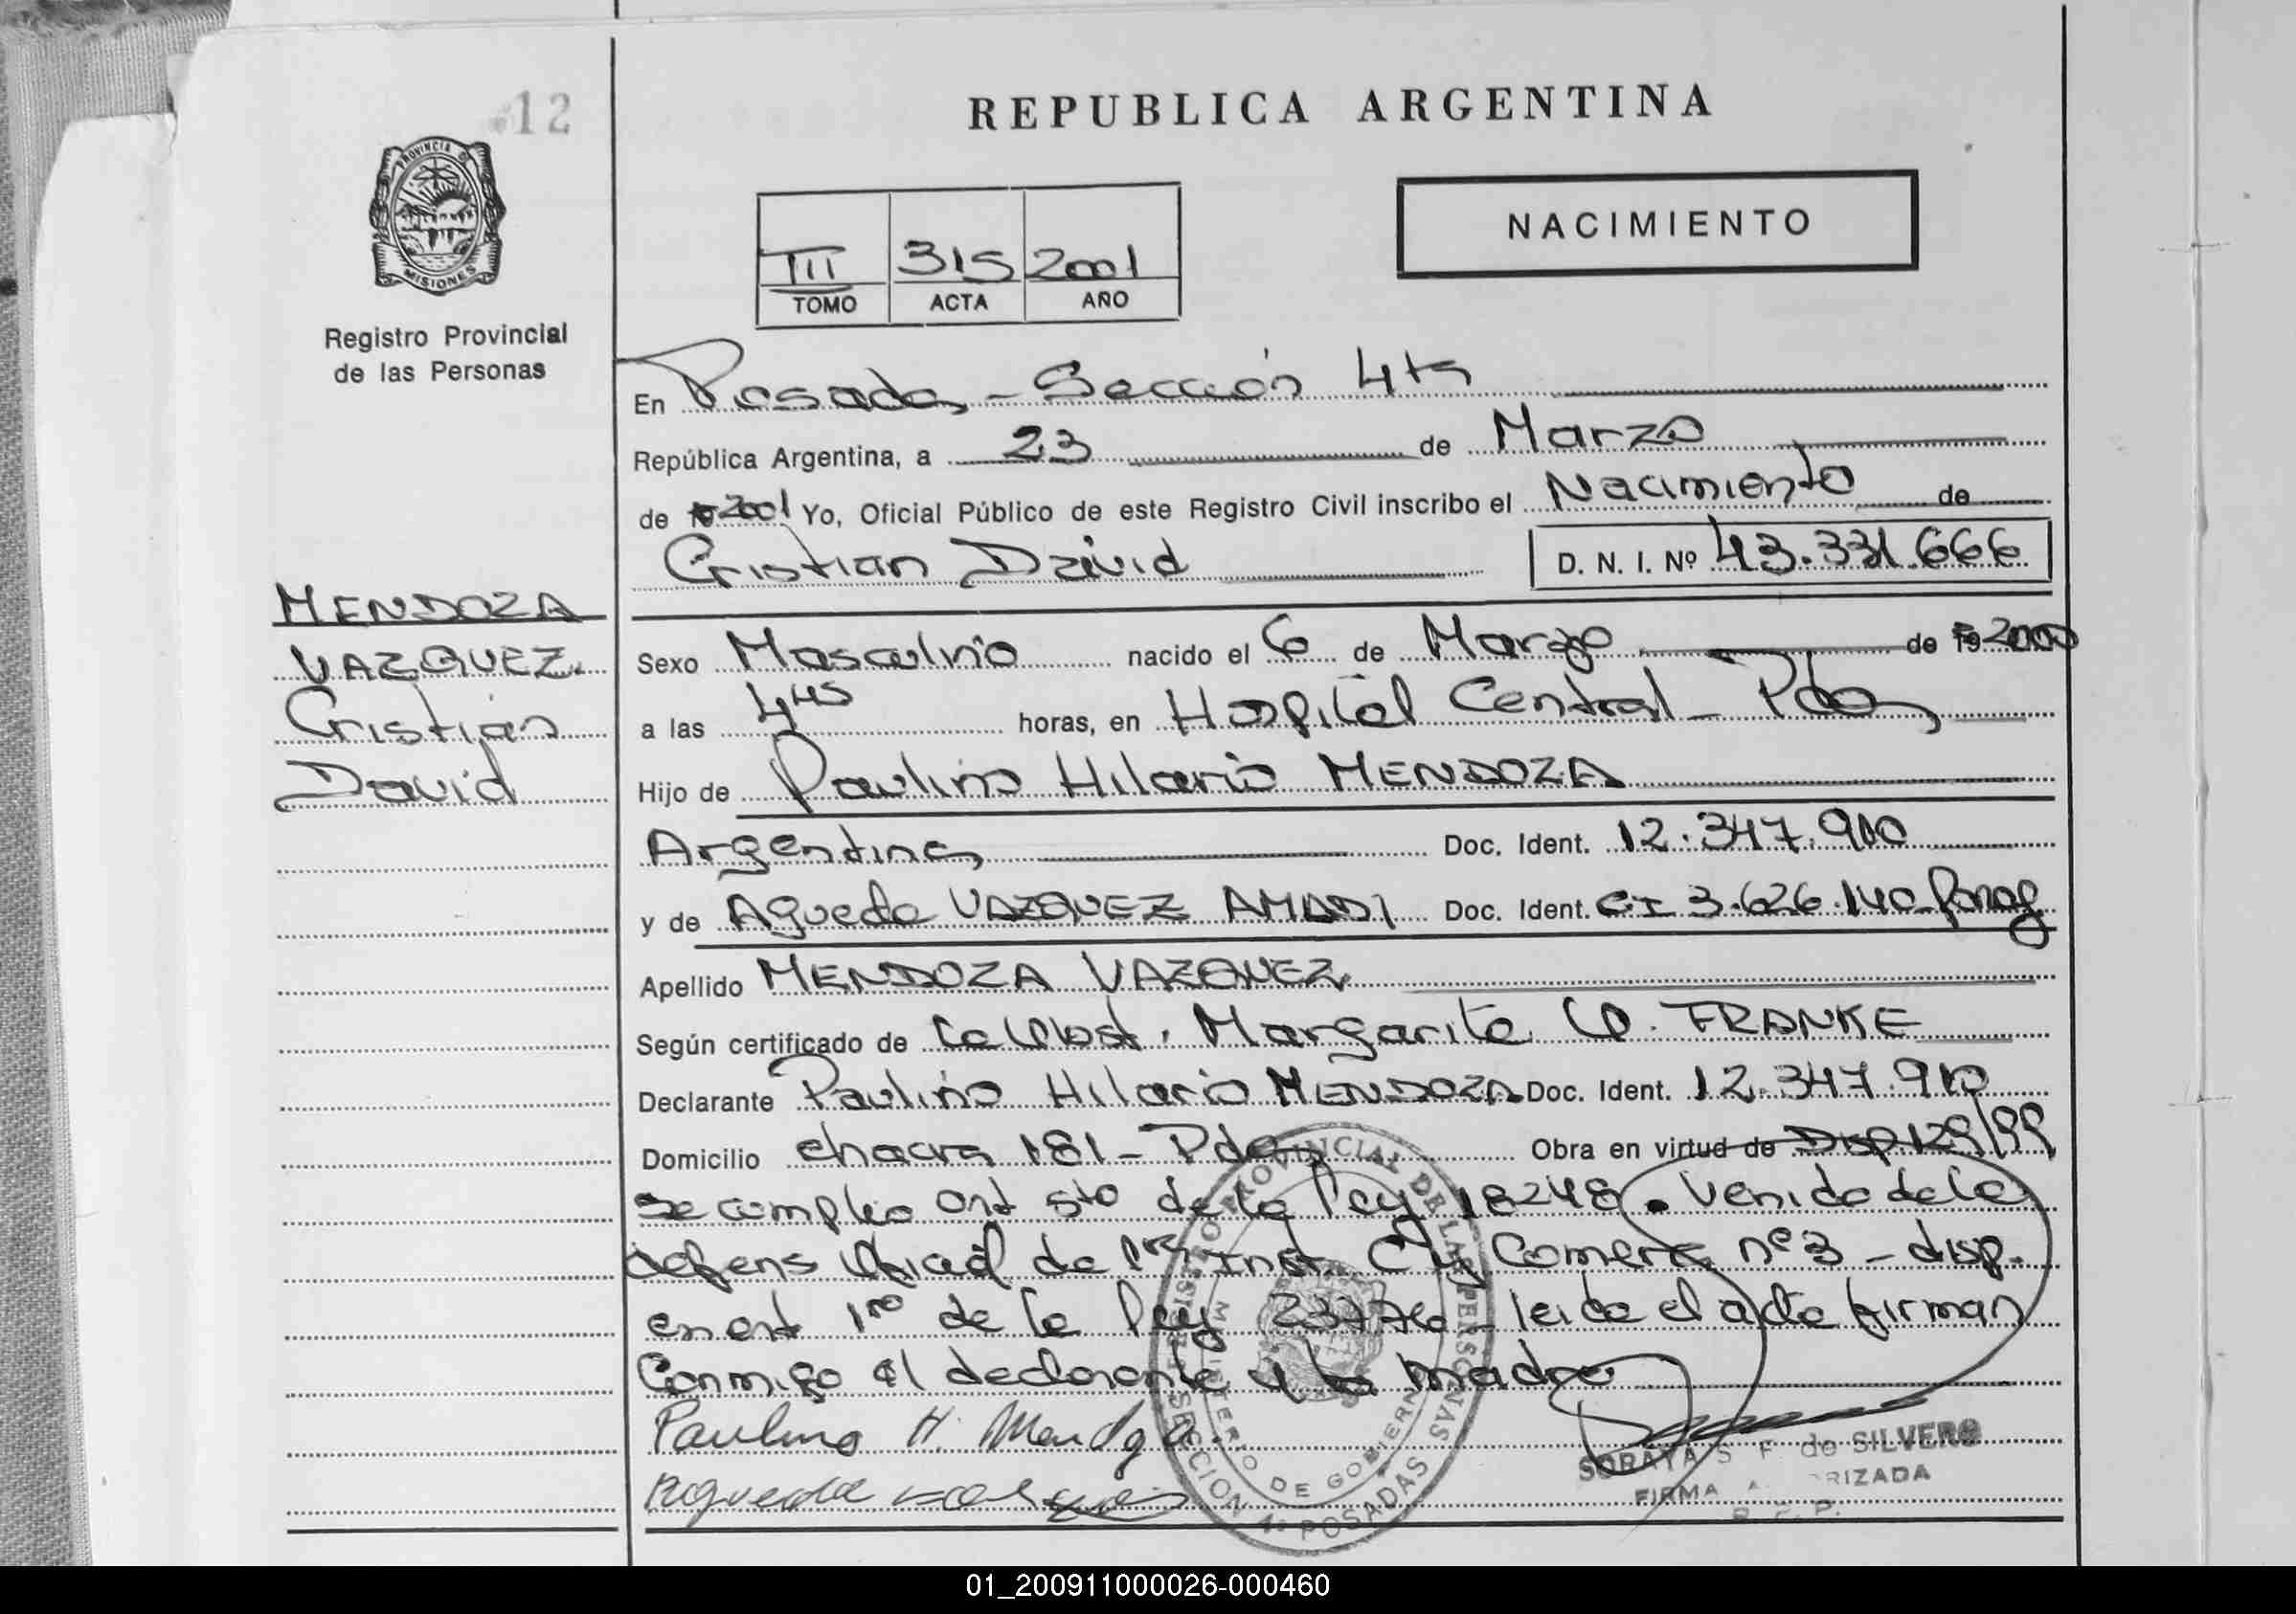 12
REPUBLICA ARGENTINA
PROVINCIA DE
MISIONES
Registro Provincial
de las Personas
NACIMIENTO
III 315 2001
TOMO ACTA AÑO
En Posadas - Sección 4ta
República Argentina, a 23 de Marzo
de 2001 Yo, Oficial Público de este Registro Civil inscribo el Nacimiento de
Cristian David D. N. I. Nº 43.331.666
MENDOZA
VAZQUEZ.
Cristian
David
Sexo Masculino nacido el 6 de Marzo de 2000
a las 4 horas, en Hospital Central - Pdas
Hijo de Paulino Hilario MENDOZA
Argentina Doc. Ident. 12.347.910
y de Agueda VAZQUEZ AMADI Doc. Ident. CI 3.626.140 Parag
Apellido MENDOZA VAZQUEZ.
Según certificado de la Obst. Margarita FRANKE
Declarante Paulino Hilario MENDOZA Doc. Ident. 12.347.910
Domicilio chacra 181 - Pdas Obra en virtud de Disp 129/99
se cumplio art 5to de la ley 18248. Venida de la
defens oficial de 1ra Inst. C y Comerc nº 3 - disp.
en art 1ro de la ley leida el acta firman
Conmigo el declarante y la madre
Paulino H. Mendoza
Agueda
REGISTRO PROVINCIAL DE LAS PERSONAS
MINISTERIO DE GOBIERNO
SECCION 4ª POSADAS
SORAYA S F. de SILVERO
FIRMA A RIZADA
R. P. P.
01_200911000026-000460